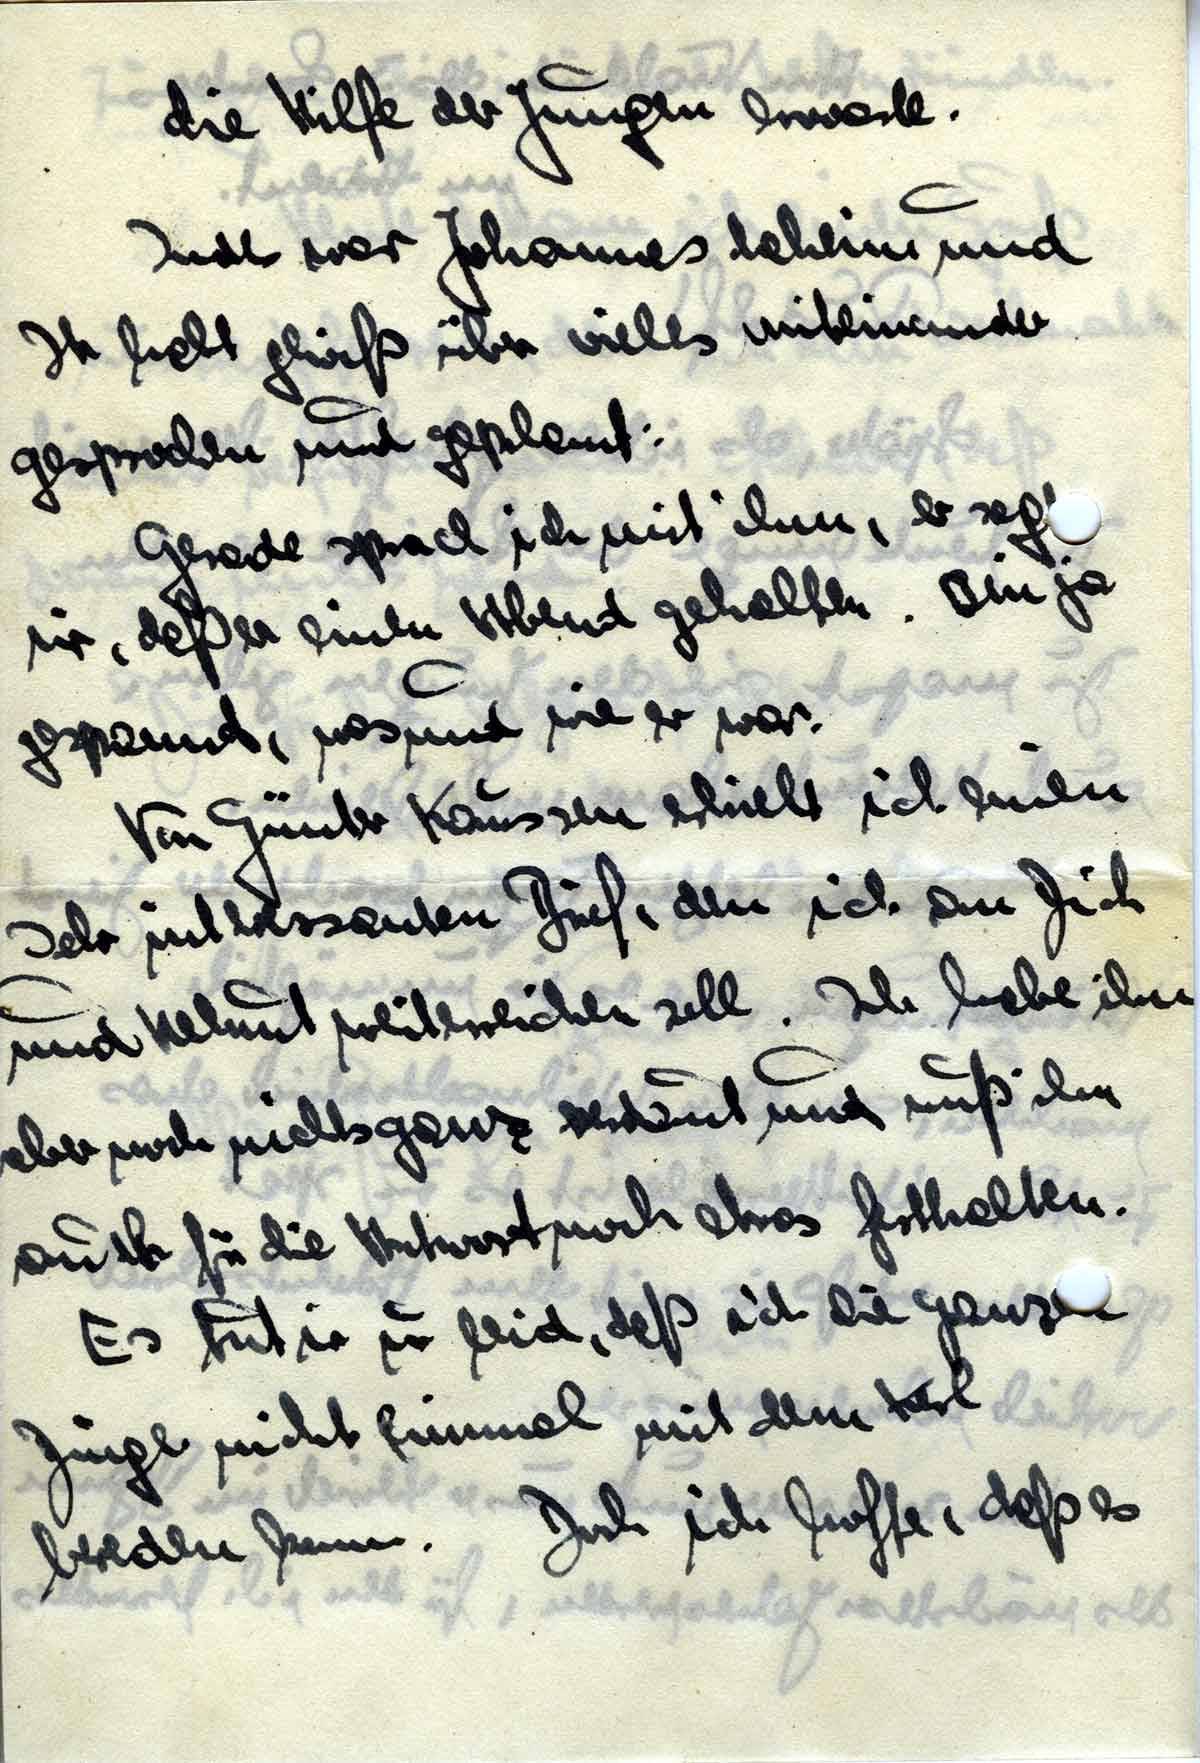 die Hilfe der Jungen erwarte.
Indes war Johannes daheim und
Ihr habt gewiß über vieles miteinander
gesprochen und geplant.
Gerade sprach ich mit ihm, er sagt
mir, daß er einen Abend gehalten. Bin ja
gespannt, was und wie er war.
Von Günter Kaussen erhielt ich einen
sehr interessanten Brief, den ich an Dich
und Helmut weiterreichen soll. Ich habe ihn
aber noch nicht ganz verdaut und muß ihn
auch für die Antwort noch etwas festhalten.
Es tut mir leid, daß ich die ganzen
Dinge nicht einmal mit dem Karl
bereden kann. Doch ich hoffe, daß es